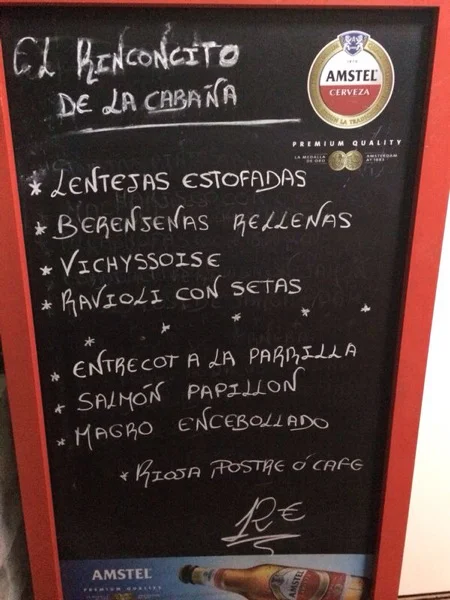 EL RINCONCITO
DE LA CABAÑA
AMSTEL
CERVEZA
PREMIUM QUALITY
LA MEDALLA
DE ORO
AMSTERDAM
* LENTEJAS ESTOFADAS
* BERENJENAS RELLENAS
* VICHYSSOISE
* RAVIOLI CON SETAS
* * * * *
* ENTRECOT A LA PARRILLA
* SALMÓN PAPILLON
* MAGRO ENCEBOLLADO
* RIOJA, POSTRE Ó CAFE
12€
AMSTEL
PREMIUM QUALITY
AMSTEL